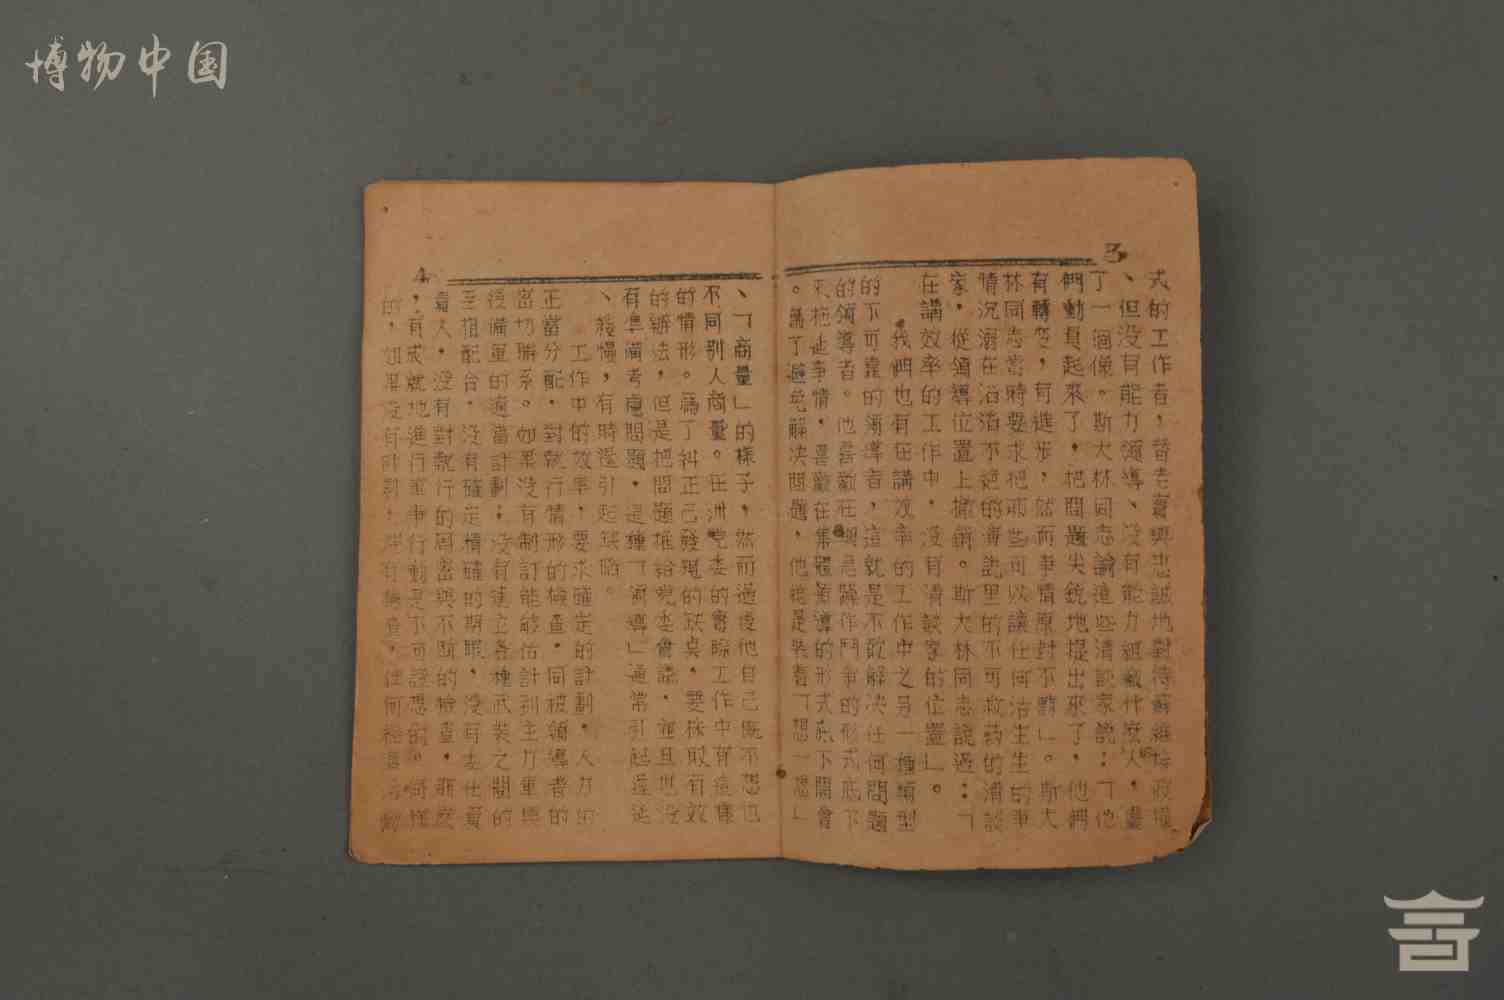 博物中国
3
式的工作者，替老實與忠誠地對待蘇維埃政權
、但没有能力領導、没有能力組織什麽人，盡
了一個像。斯大林同志論這些清談家説：「他
們動員起來了，把問題尖銳地提出來了，他們
有轉变，有進步，然而事情原封不動」。斯大
林同志當時要求把那些可以讓任何活生生的事
情沉溺在滔滔不绝的演説里的不可救药的清談
家，從領導位置上撤銷。斯大林同志説過：「
在講效率的工作中，没有清談家的位置」。
我們也有在講效率的工作中之另一種類型
的不可靠的領導者，這就是不敢解决任何問題
的領導者。他喜歡在與急躁作鬥争的形式底下
拖延事情，喜歡在集體領導的形式底下開會
。爲了避免解决問題，他總是装着「想一想」
4
、「商量」的樣子，然而過後他自己既不想也
不同别人商量。在洲党委的實際工作中有這樣
的情形。爲了糾正己發現的缺臭，要採取有效
的辦法，但是把問題推給党委會議，並且也没
有準備考慮問題，是種「領導」通常引起遲延
、緩慢，有時還引起缺陷。
工作中的效率，要求確定的計劃，人力的
正當分配，對執行情形的檢查，同被領導者的
密切聯系。如果没有制訂能够估計到主力軍與
後備軍的適當計劃；没有建立各種武装之間的
互相配合，没有確定精確的期限，没有責任負
責人，没有對執行的周密與不断的檢查，那麽
，有成就地進行軍事行動是不可設想的。
的，如果没有計劃，没有檢查，任何